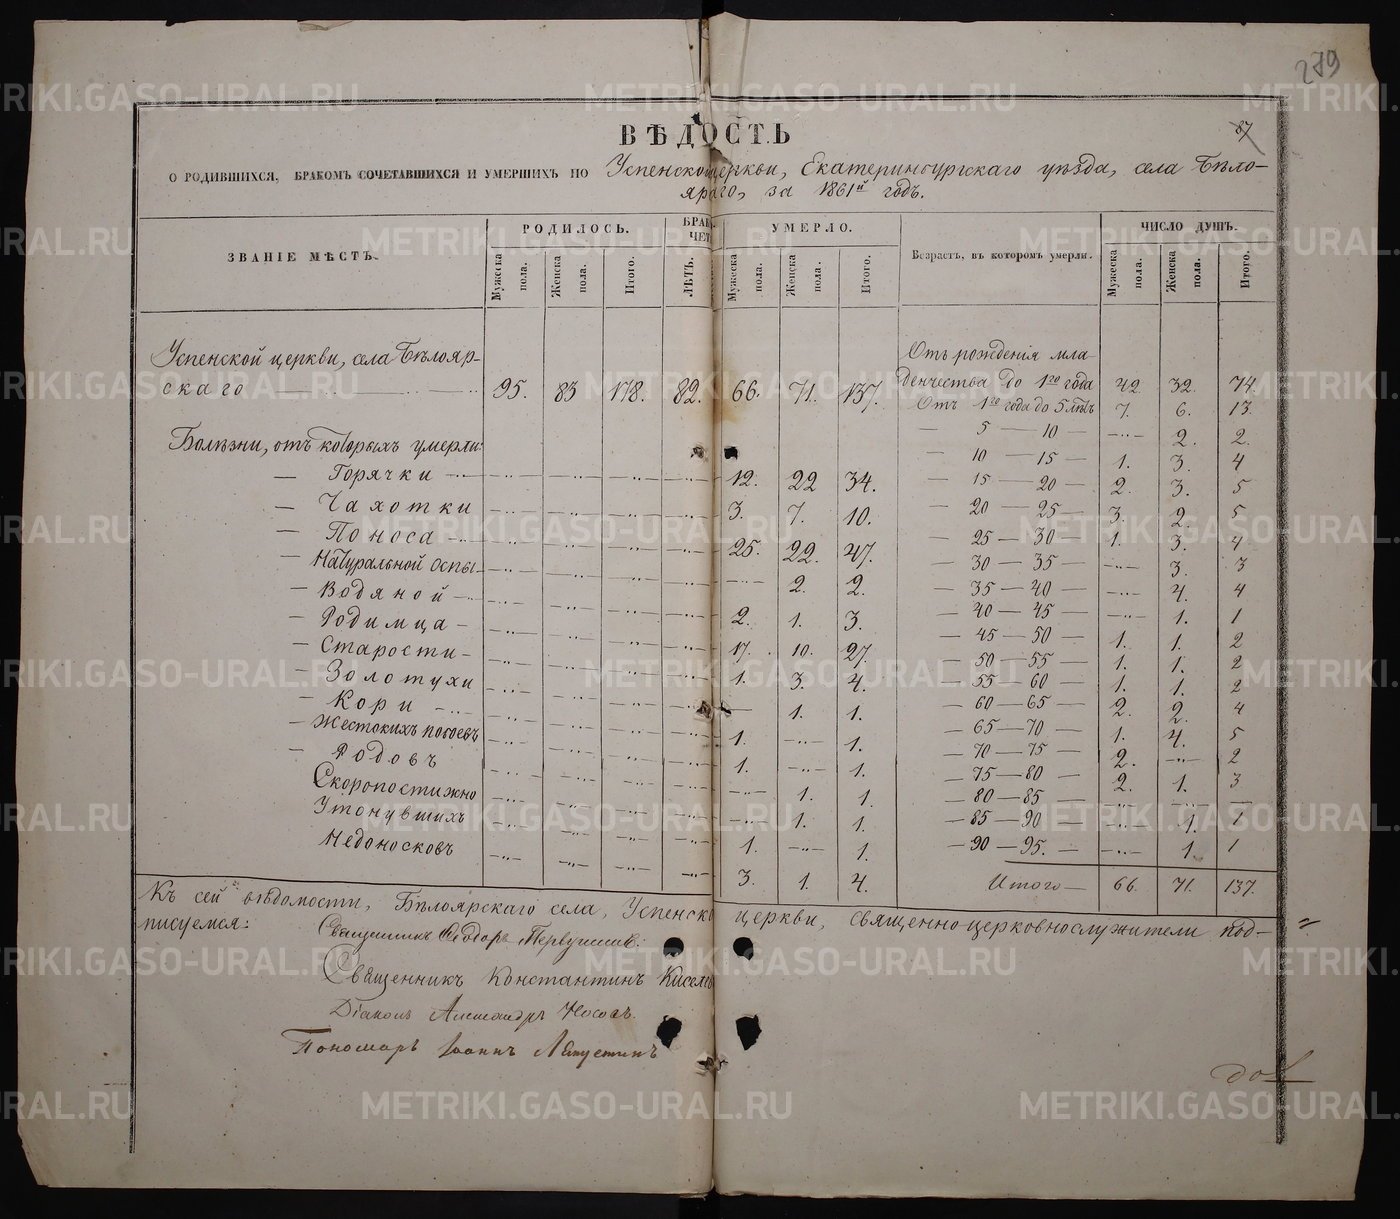 279
87
ВѢДОСТЬ
О РОДИВШИХСЯ, БРАКОМЪ СОЧЕТАВШИХСЯ И УМЕРШИХЪ ПО Успенской церкви, Екатеринбургскаго уѣзда, села Бѣло-
яраго, за 1861й годъ.
ЗВАНІЕ МѢСТЪ. РОДИЛОСЬ. БРАК ЧЕТ УМЕРЛО. Возрастъ, въ которомъ умерли. ЧИСЛО ДУШЪ.
Мужеска пола. Женска пола. Итого. ЛѢТЪ. Мужеска пола. Женска пола. Итого. Мужеска пола. Женска пола. Итого.
Успенской церкви, села Бѣлояр- Отъ рожденія мла
скаго 95. 83 178. 82. 66. 71. 137. денчества до 1го года 42. 32. 74.
Отъ 1го года до 5 лѣтъ 7. 6. 13.
Болѣзни, отъ которыхъ умерли: — 5 — 10 — —..— 2. 2.
— Горячки —..— —..— —..— —..— 12. 22 34. — 10 — 15 — 1. 3. 4
— Чахотки —..— —..— —..— —..— 3. 7. 10. — 15 — 20 — 2. 3. 5
— Поноса —..— —..— —..— —..— 25. 22. 47. — 20 — 25 — 3. 2. 5
— Натуральной оспы —..— —..— —..— —..— —..— 2. 2. — 25 — 30 — 1. 3. 4
— Водяной —..— —..— —..— —..— 2. 1. 3. — 30 — 35 — —..— 3. 3
— Родимца —..— —..— —..— —..— 17. 10. 27. — 35 — 40 — —..— 4. 4
— Старости —..— —..— —..— —..— 1. 3. 4. — 40 — 45 — —..— 1. 1
— Золотухи —..— —..— —..— —..— — 1. 1. — 45 — 50 — 1. 1. 2
— Кори —..— —..— —..— —..— 1. —..— 1. — 50 — 55 — 1. 1. 2
— Жестокихъ побоевъ —..— —..— —..— —..— 1. —..— 1. — 55 — 60 — 1. 1. 2
— Родовъ —..— —..— —..— —..— —..— 1. 1. — 60 — 65 — 2. 2. 4
Скоропостижно —..— —..— —..— —..— —..— 1. 1. — 65 — 70 — 1. 4. 5
Утонувшихъ —..— —..— —..— —..— 1. —..— 1. — 70 — 75 — 2. —..— 2
Недоносковъ —..— —..— —..— —..— 3. 1. 4. — 75 — 80 — 2. 1. 3
— 80 — 85 — —..— —..— —
— 85 — 90 — —..— 1. 1
— 90 — 95. — —..— 1. 1
Итого — 66. 71. 137.
Къ сей вѣдомости, Бѣлоярскаго села, Успенско церкви, священно-церковнослужители под-
писуемся:
Священникъ Ѳеодоръ
Священникъ Константинъ Киселев
Діаконъ Александръ Носовъ.
Пономарь Іоаннъ